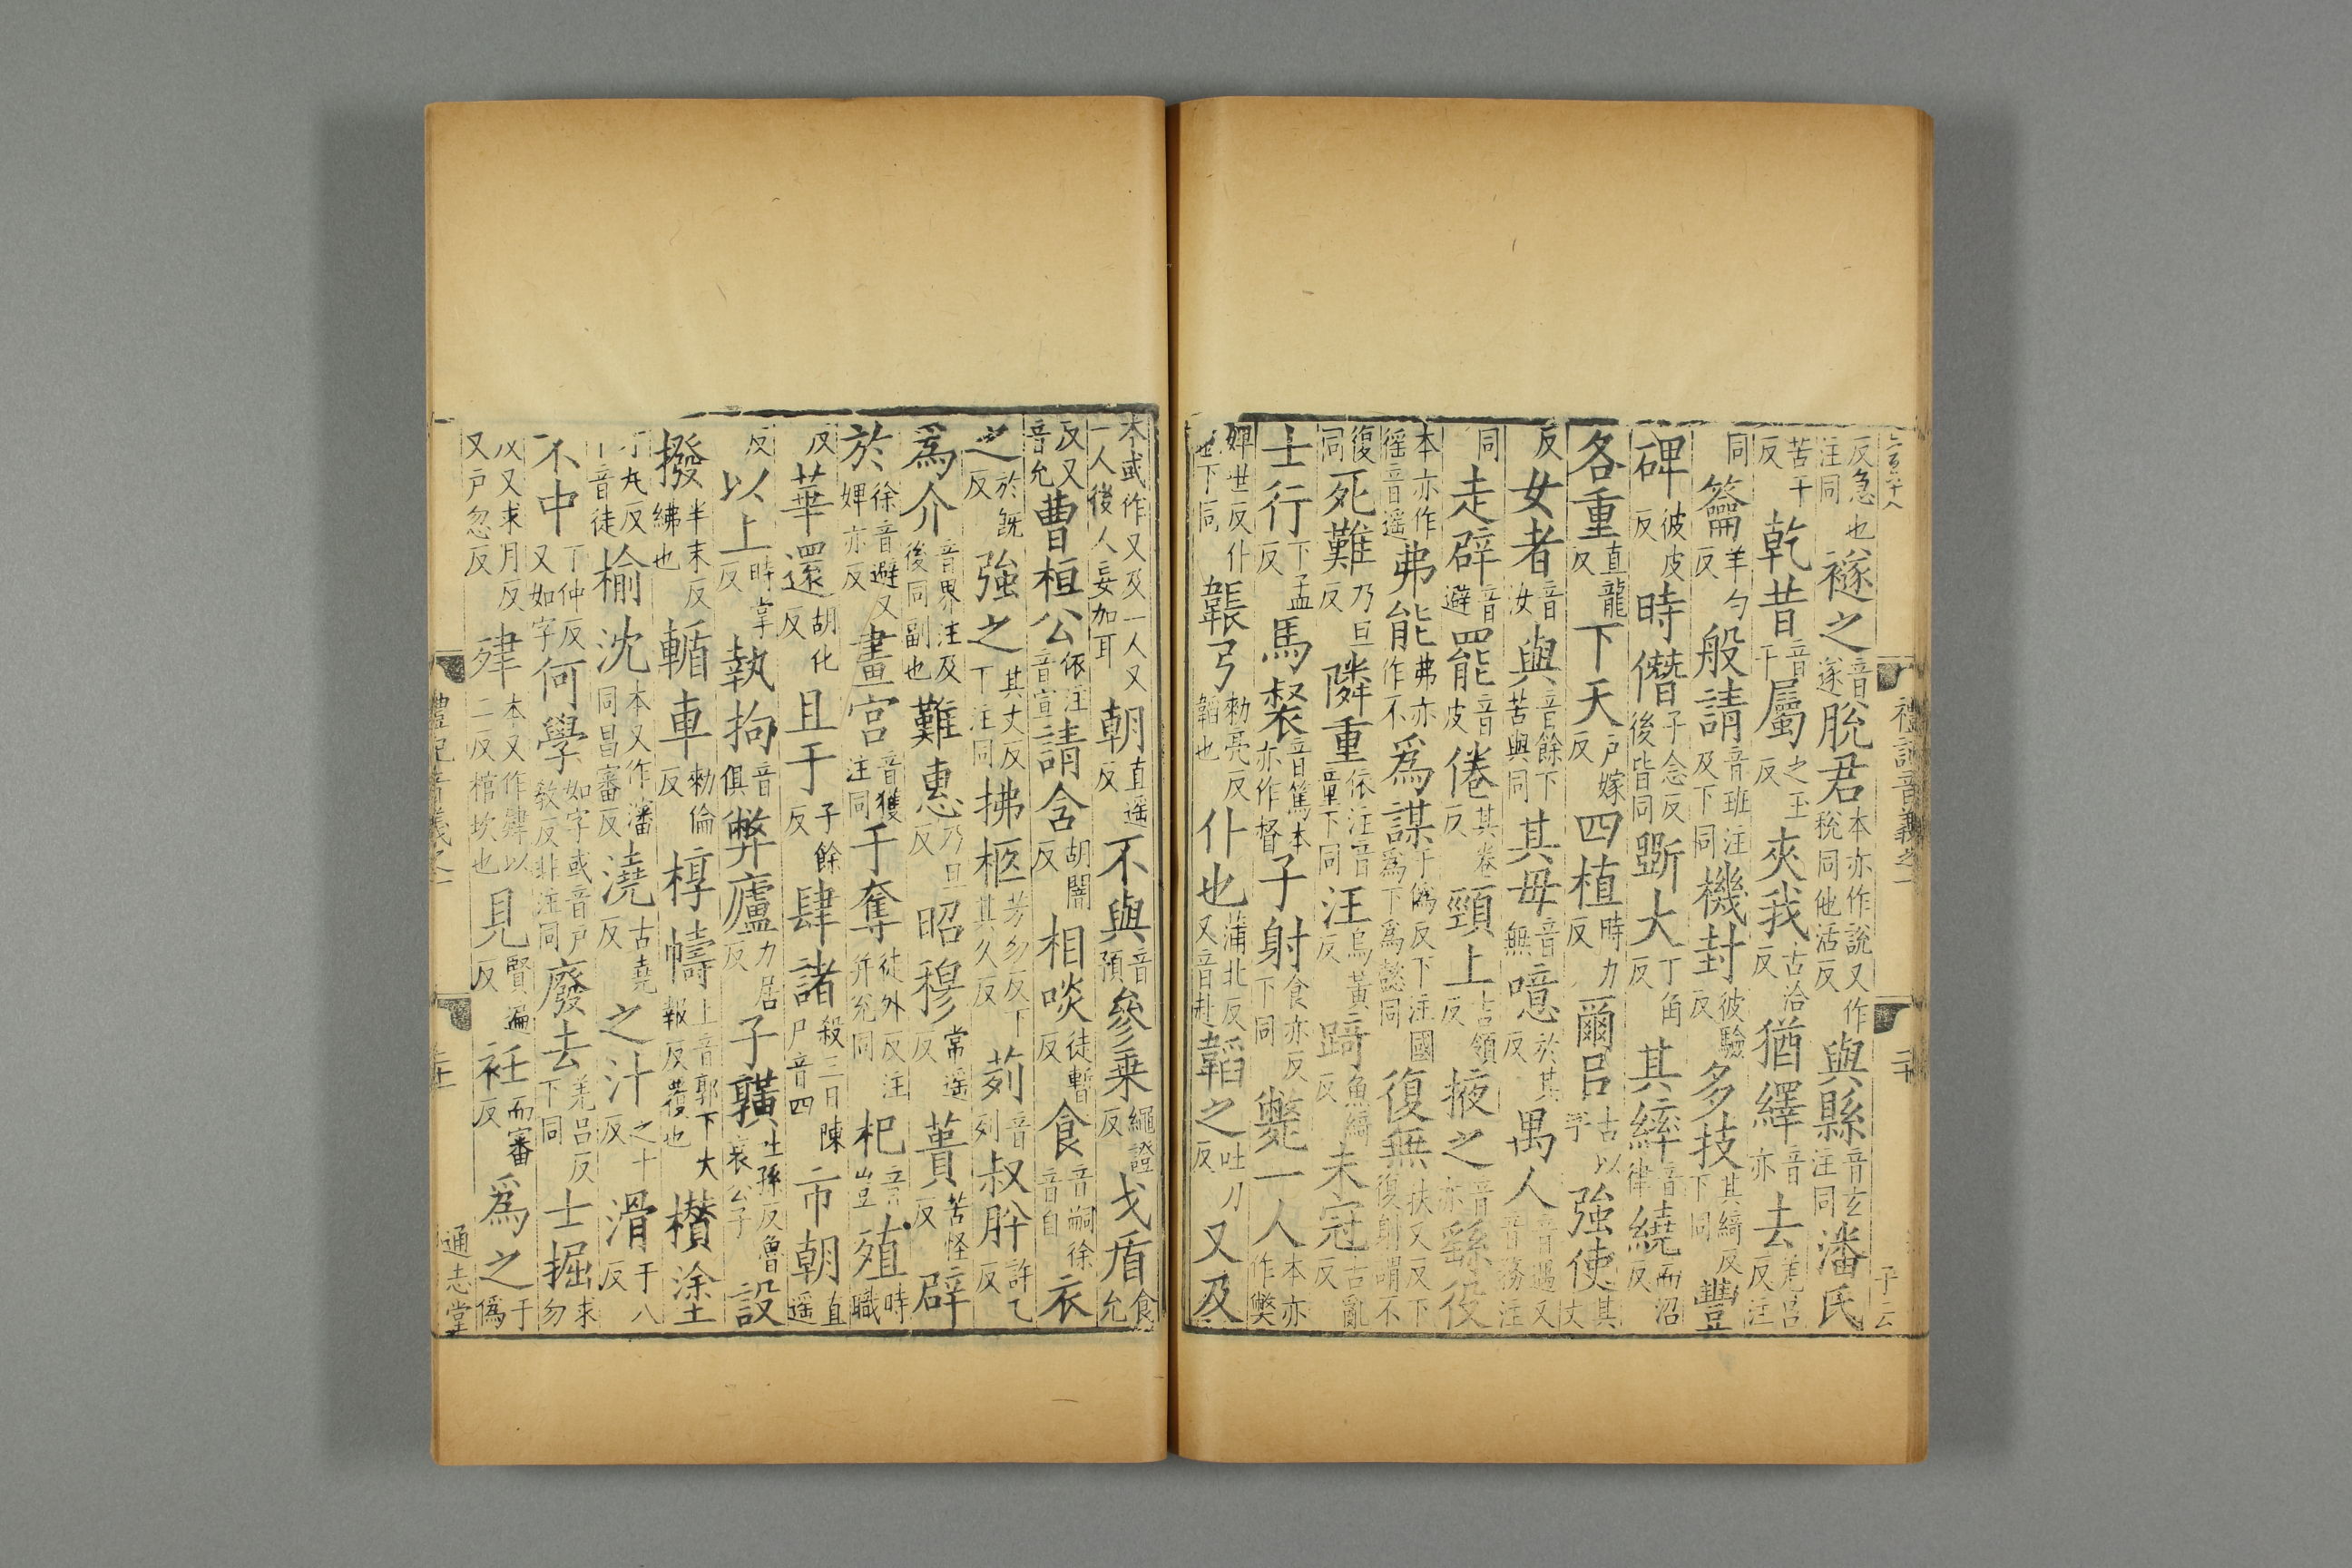 反急也禭之音遂脫君本亦作說又作稅同他活反與縣音玄注同潘氏
注同
苦干反乾昔音干屬之玉反夾我古洽反猶繹音亦去羌呂反注
同籥羊勺反般請音班注及下同機封彼驗反多技其綺反下同豐
碑彼皮反時僭子念反後皆同斲大丁角反其繂音律繞而沼反
各重直龍反下天戶嫁反四植時力反爾呂古以字強使其丈
反女者音汝與音餘下苦與同其毋音無噫於其反禺人音遇又音務注
同走辟音避罷音皮倦其卷反頸上吉領反掖之音亦繇役
本亦作徭音遥弗能弗亦作不為謀于偽反下注國為下為懿同復無扶又反下復射謂不
復同死難乃旦反隣重依注音童下同汪烏黃反踦魚綺反未冠古亂反
士行下孟反馬裻音篤本亦作督子射食亦反下同斃一人本亦作獘
婢世反仆也下同韔弓勑亮反韜也仆也蒲北反又音赴韜之吐刀反又及
本或作又及一人又一人後人妄加耳朝直遥反不與音預參乗繩證反戈盾食允
反又音允曹桓公依注音宣請含胡闇反相啖徒暫反食音嗣徐音自衣
之於旣反強之其丈反下注同拂柩芳勿反下其久反茢音列叔肸許乙反
為介音界注及後同副也難惠乃旦反昭穆常遥反蕢苦怪反辟
於徐音避又婢亦反畫宮音獲注同于奪徒外反注并兊同杞音豈殖時職
反華還胡化反且于子餘反肆諸殺三日陳尸音四市朝直遥
反以上時掌反執拘音俱弊廬力居反子䵃吐孫反魯哀公子設
撥半末反紼也輴車勑倫反椁幬上音郭下大報反覆也欑塗
才丸反音徒榆沈本又作瀋同昌審反澆古堯反之汁之十反滑于八反
不中丁仲反又如字何學如字或音戶敎反非注同廢去羌呂反下同士掘求勿
以又求月反又戶忽反肂本又作肄以二反棺坎也見賢遍反衽而審反為之于偽
禮記音義之一
二十
通志堂